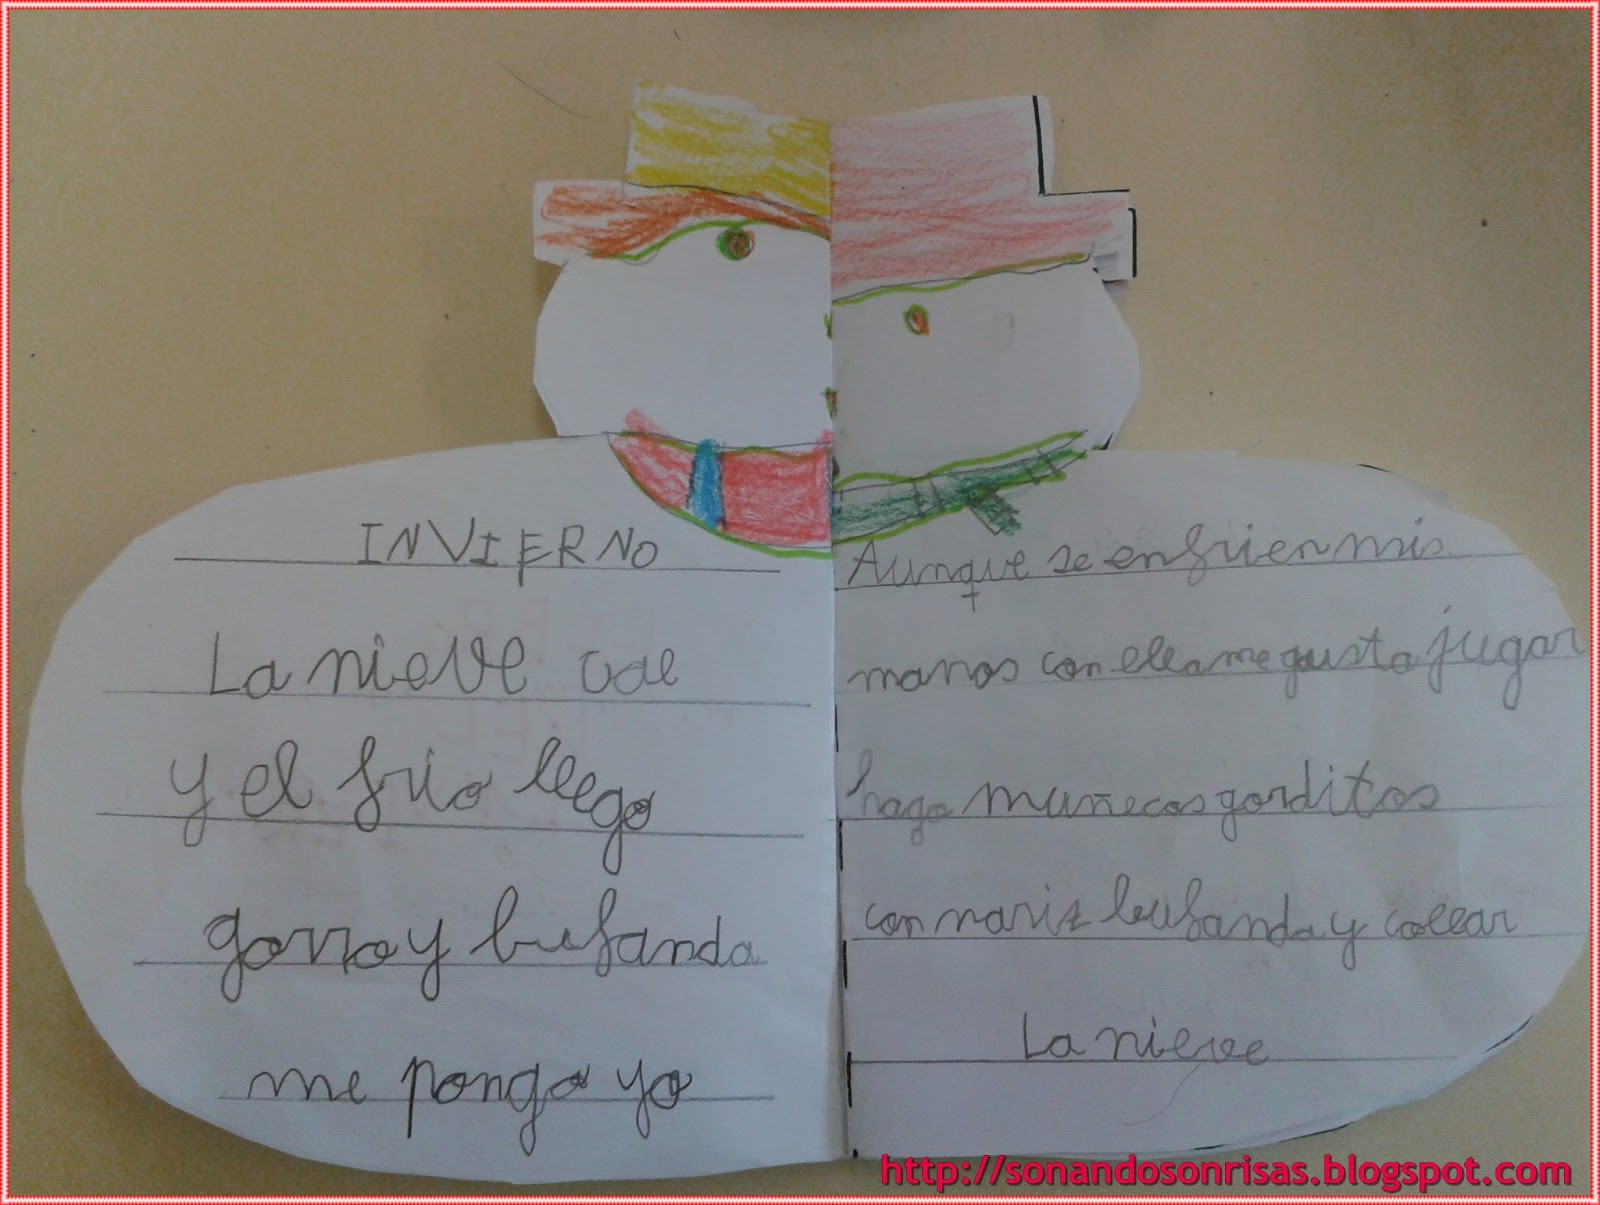 INVIERNO
La nieve cae
y el frio llego
gorro y bufanda
me pongo yo
Aunque se enfrien mis
manos con ella me gusta jugar
hago muñecos gorditos
con nariz bufanda y collar
La nieve
http://sonandosonrisas.blogspot.com